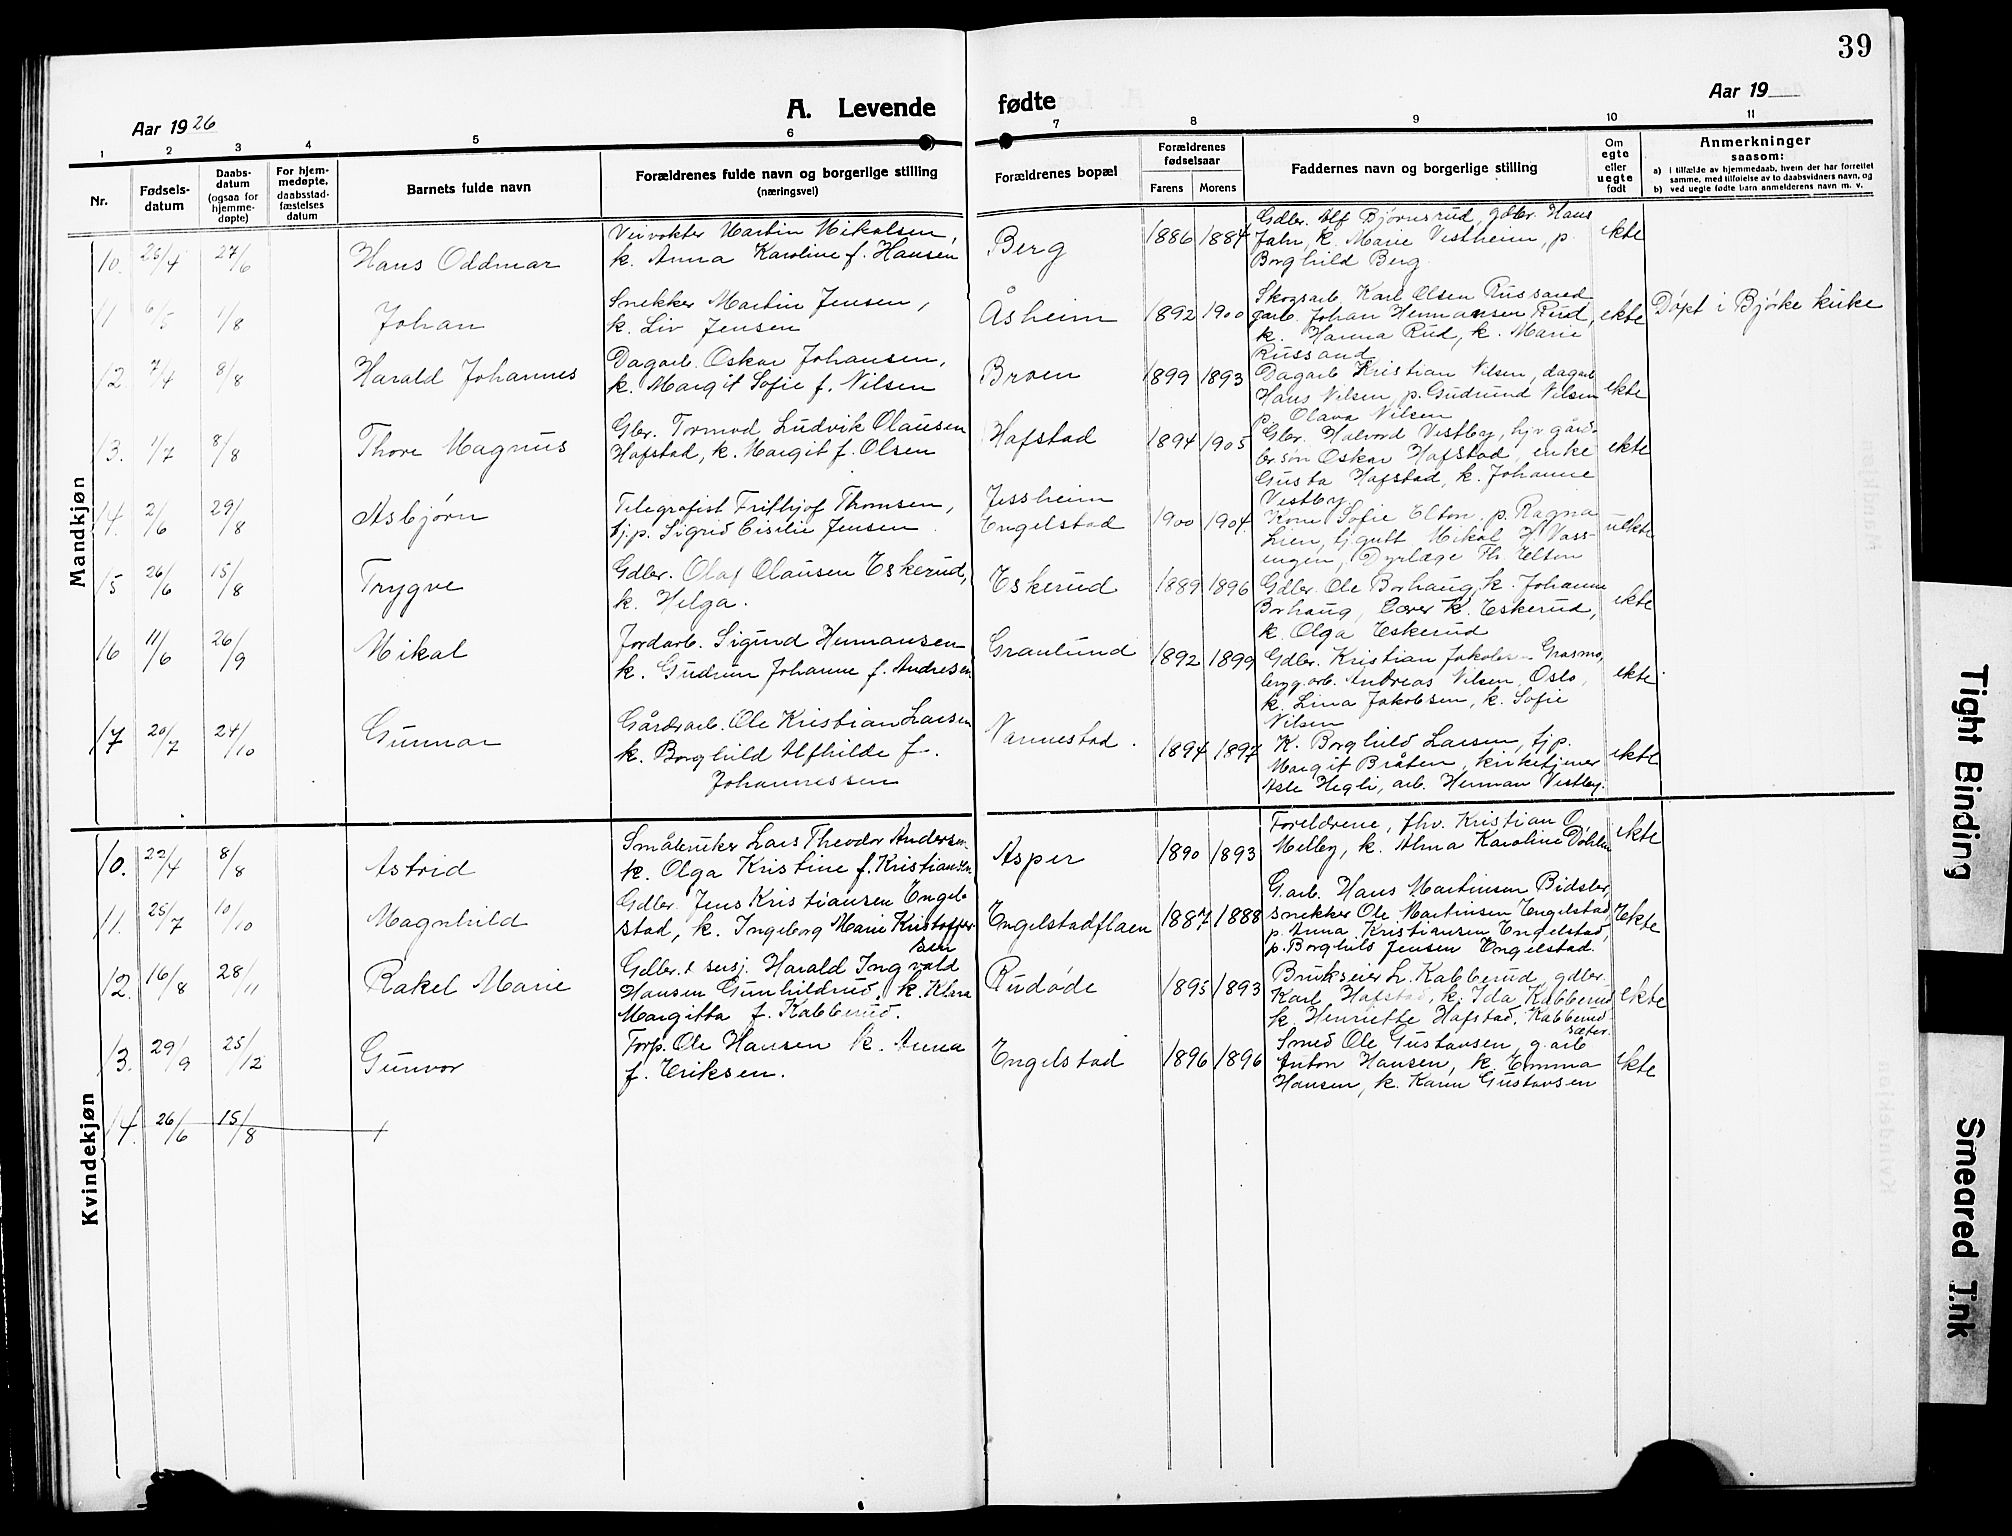 39
Aar 1926
A. Levende
fødte
Aar 19
1 2 3 4 5 6 7 8 9 10 11
Nr.
Fødsels-
datum
Daabs-
datum
(ogsaa for
hjemme-
døpte)
For hjem-
medøpte,
daabsstad-
fæstelses
datum
Barnets fulde navn
Forældrenes fulde navn og borgerlige stilling
(næringsvei)
Forældrenes bopæl
Forældrenes
fødselsaar
Farens
Morens
Faddernes navn og borgerlige stilling
Om
egte
eller
uegte
født
Anmerkninger
saasom:
a) i tilfælde av hjemmedaab, hvem der har forrettet
samme, med tilføielse av to daabsvidners navn, og
b) ved uegte fødte barn anmelderens navn m. v.
Mandkjøn
10. 26/4 27/6
Hans Oddmar
Veivokter Martin Mikalsen,
k. Anna Karoline f. Hansen
Berg
1886 1884
Gdbr. Alf Bjørnsrud, gdbr. Hans
Jahr, k. Marie Vestheim, p.
Borghild Berg
ekte
11 6/5 1/8
Johan
Snekker Martin Jensen,
k. Liv Jensen
Åsheim
1892 1900
Skogsarb. Karl Olsen Russared
garb. Johan Hermansen Rud,
k. Hanna Rud, k. Marie
Russand
ekte
Døpt i Bjørke kirke
12 7/4 8/8
Harald Johannes
Dagarb. Oskar Johansen,
k. Margit Sofie f. Nilsen
Broen
1899 1893
Dagarb Kristian Nilsen, dagarb
Hans Nilsen, p. Gudrund Nilsen
p. Olava Nilsen
ekte
13. 1/7 8/8
Thore Magnus
Gbr. Tormod Ludvik Olausen
Hafstad, k. Margit f. Olsen
Hafstad
1894 1905
Gbr. Halvord Vestby, hjv gård-
br. søn Oskar Hafstad, enke
Gusta Hafstad, k. Johanne
Vestby
ekte
14. 2/6 29/8
Asbjørn
Telegrafist Frithjof Thomsen,
tj.p. Sigrid Cisilie Jensen
Jessheim
Engelstad
1900 1904.
Kone Sofie Elton, p. Ragna
Lien, tj.gutt Mikal H. Vass-
ingen, Dyrlæge Th. Elton
uekte
15 26/6 15/8
Trygve
Gdbr. Olaf Olausen Eskerud,
k. Helga.
Eskerud
1889 1896
Gdbr. Ole Borhaug, k. Johanne
Borhaug, Lærer K. Eskerud,
k. Olga Eskerud
ekte
16 11/6 26/9
Mikal
Jordarb. Sigurd Hermansen
k. Gudrun Johanne f. Andresen
Granlund
1892 1899
Gdbr. Kristian Jakobsen Grasmo,
bryg.arb. Andreas Nilsen, Oslo,
k. Lina Jakobsen, k. Sofie
Nilsen
ekte.
17 20/7 24/10
Gunnar
Gårdsarb. Ole Kristian Larsen
k. Borghild Alfhilde f.
Johannessen
Nannestad.
1894 1897
K. Borghild Larsen, tjp.
Margit Bråten, kirketjener
Asle Hegli, arb. Herman Vestby.
ekte
Kvindekjøn
10. 22/4 8/8
Astrid
Småbruker Lars Theodor Andersen
k. Olga Kristine f. Kristiansen
Asper
1890 1893
Foreldrene, fhv. Kristian O.
Melby, k. Alma Karoline Døhlen
ekte
11. 25/7 10/10
Magnhild
Gdbr. Jens Kristiansen Engel-
stad, k. Ingeborg Marie Kristoffer
sen
Engelstadflaen
1887 1888
G.arb. Hans Martinsen Bidsler,
snekker Ole Martinsen Engelstad,
p. Anna Kristiansen Engelstad,
p. Borghild Jensen Engelstad.
Ekte
12. 16/8 28/11
Rakel Marie
Gdbr. & sersj. Harald Ingvald
Hansen Gunhildrud, k. Klara
Margitta f. Kabberud.
Rudøde
1895 1893
Brukseier L. Kabberud, gdbr.
Karl Hafstad, k. Ida Kabberud
k. Henriette Hafstad, Kabberud
sæter.
ekte
13. 29/9 25/12
Gunvor
Torp. Ole Hansen k. Anna
f. Eriksen.
Engelstad
1896 1896
Smed Ole Gustavsen, g. arb
Anton Hansen, k. Emma
Hansen, k. Karen Gustavsen
ekte
14. 26/6 15/8
Tight Binding
Smeared Ink